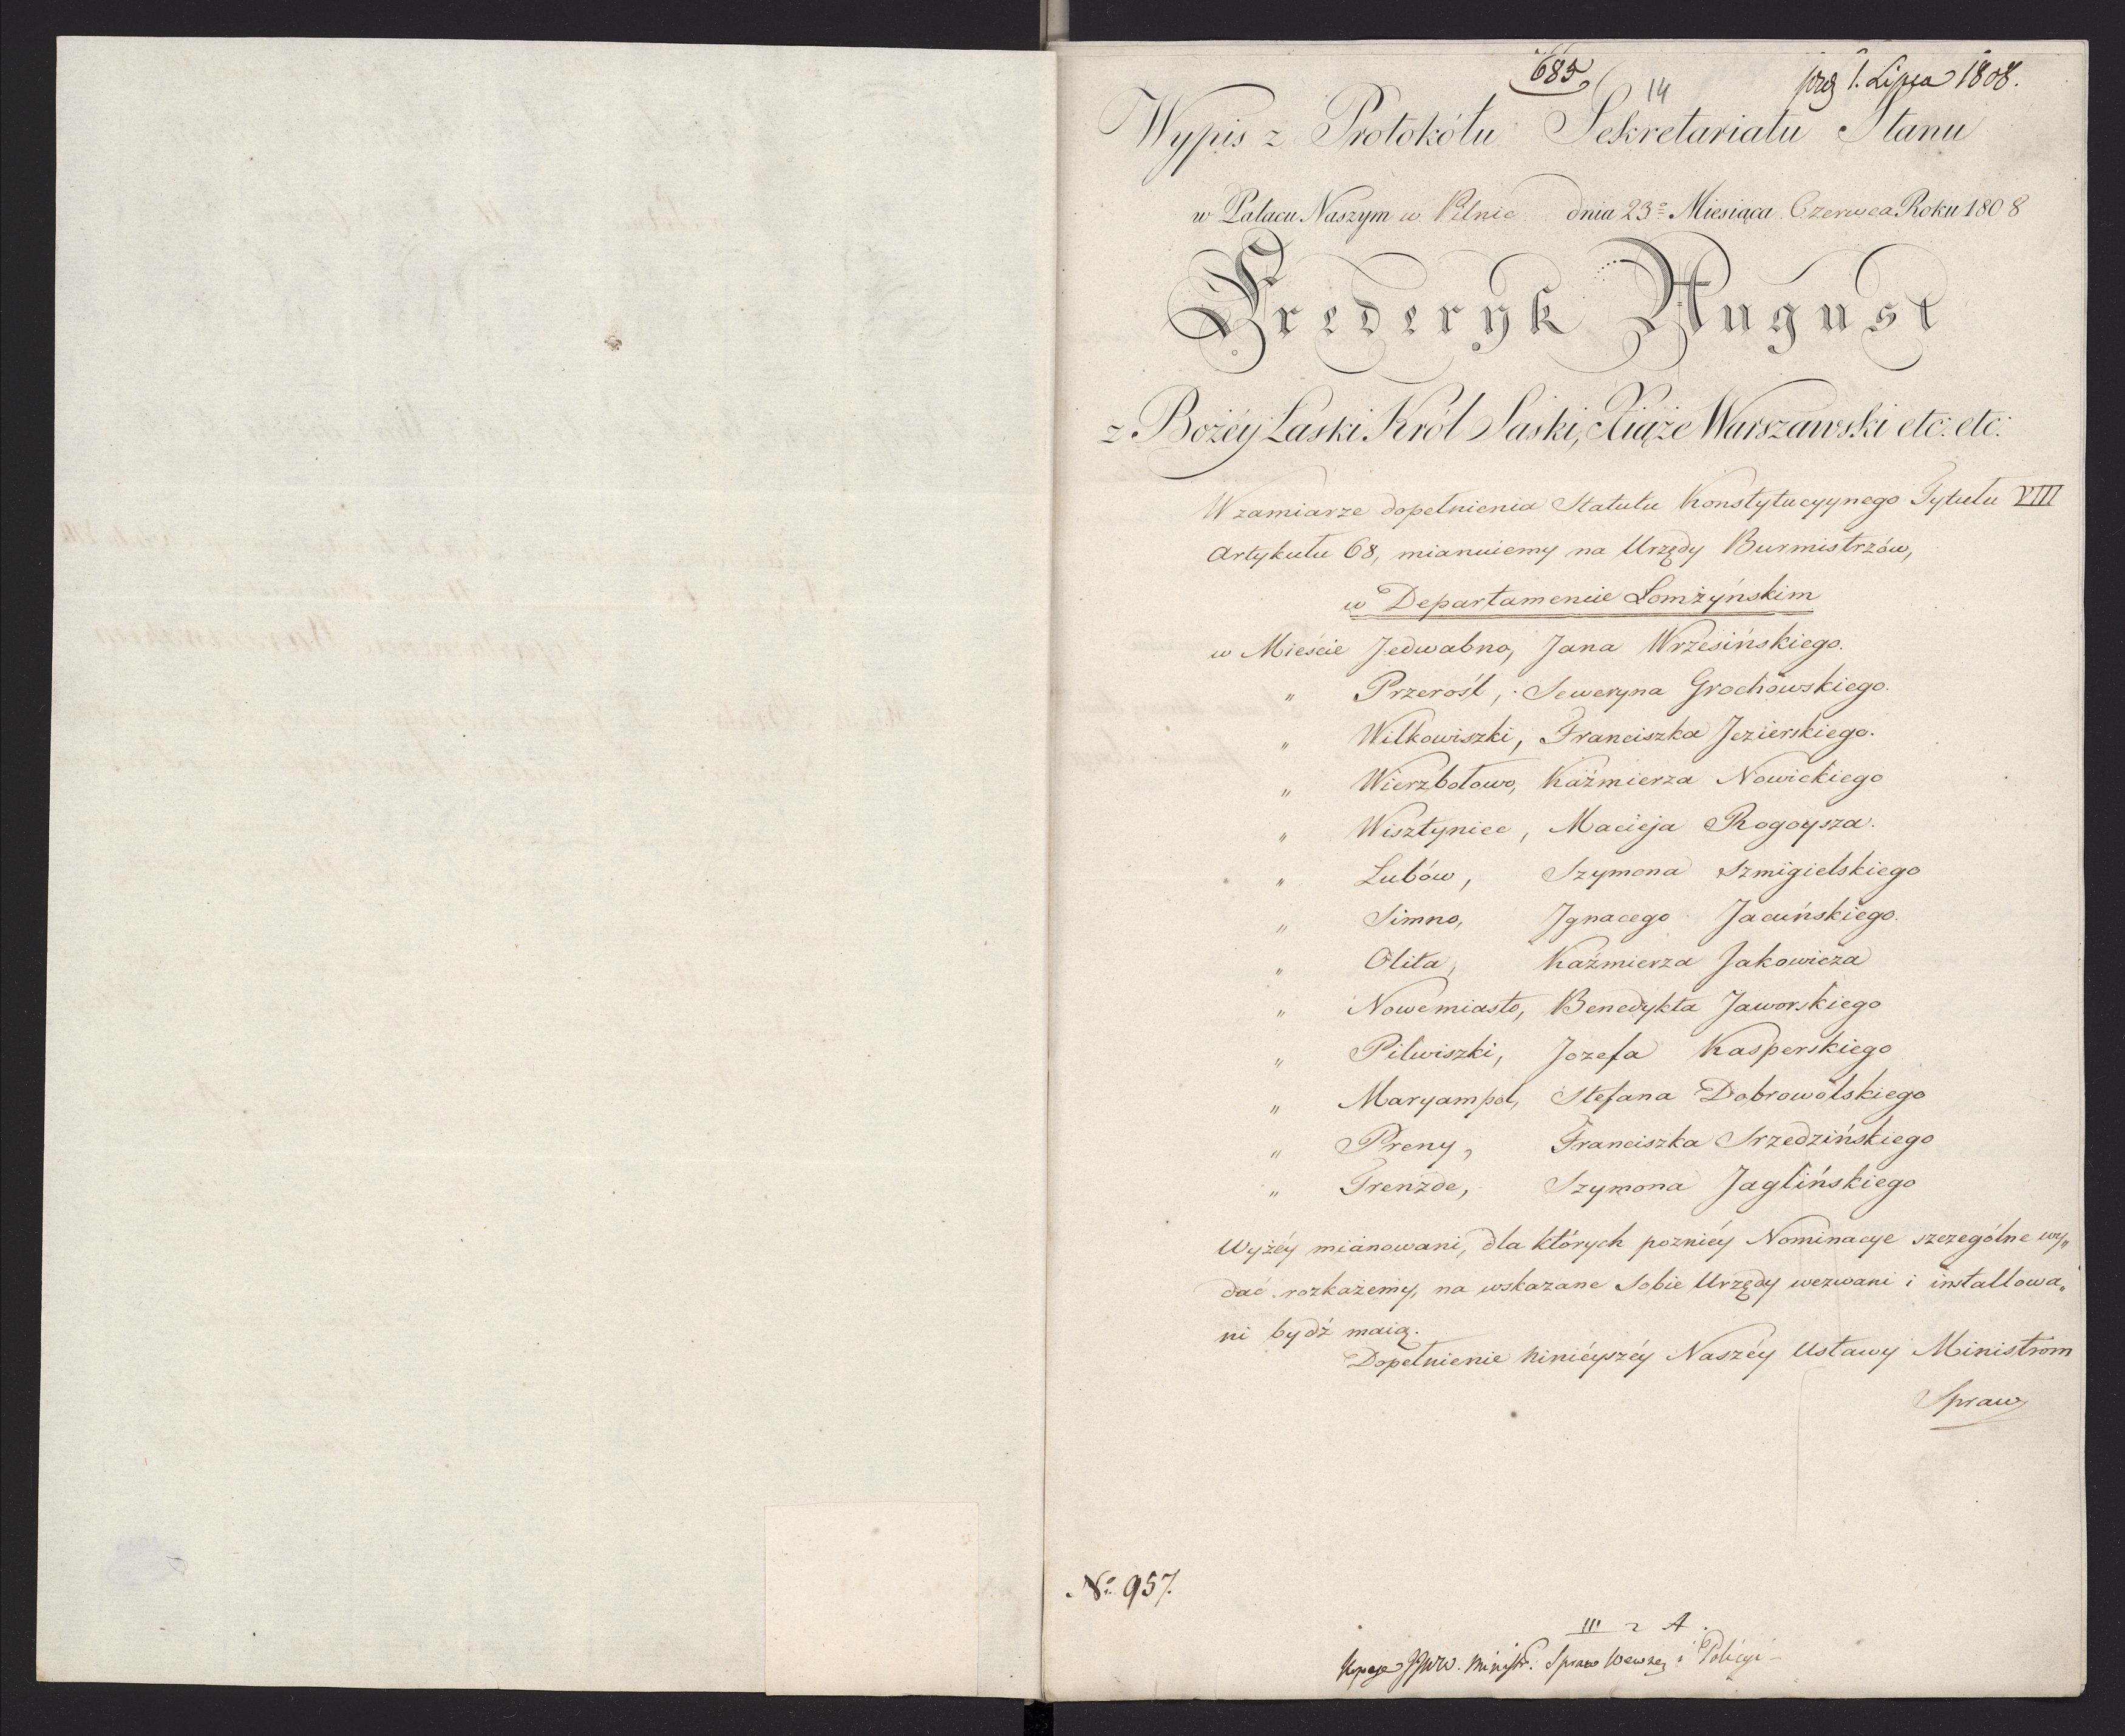 685
14
prez 1. Lipca 1808.
Wypis z Protokółu Sekretariatu Stanu
w Pałacu Naszym w Pilnic dnia 23º Miesiąca Czerwca Roku 1808
Frederyk August
z Bożéy Łaski Król Saski, Xiąże Warszawski etc: etc:
W zamiarze dopełnienia Statutu Konstytucyynego Tytułu VIII
Artykułu 68, mianuiemy na Urzędy Burmistrzów,
w Departamencie Łomżyńskim
w Mieście Jedwabno, Jana Wrzesińskiego.
" Przerośl, Seweryna Grochowskiego.
" Wilkowiszki, Franciszka Jezierskiego.
" Wierzbołowo, Kaźmierza Nowickiego
" Wisztyniec, Macieja Rogoysza.
" Lubów, Szymona Szmigielskiego
" Simno, Jgnacego Jacuńskiego.
" Olita, Kaźmierza Jakowicza
" Nowemiasto, Benedykta Jaworskiego
" Pilwiszki, Jozefa Kasperskiego
" Maryampol, Stefana Dobrowolskiego
" Preny, Franciszka Srzedzińskiego
" Frenzde, Szymona Jaglińskiego
Wyżéy mianowani, dla których pozniéy Nominacye szczególne wy„
dać rozkażemy, na wskazane Sobie Urzędy wezwani i installowa„
ni bydź maią.
Dopełnienie ninieyszéy Naszéy Ustawy Ministrom
Spraw
Nº 957.
III 2 A.
Kopije JJWW. Ministr. Spraw Wewnę i Policyi